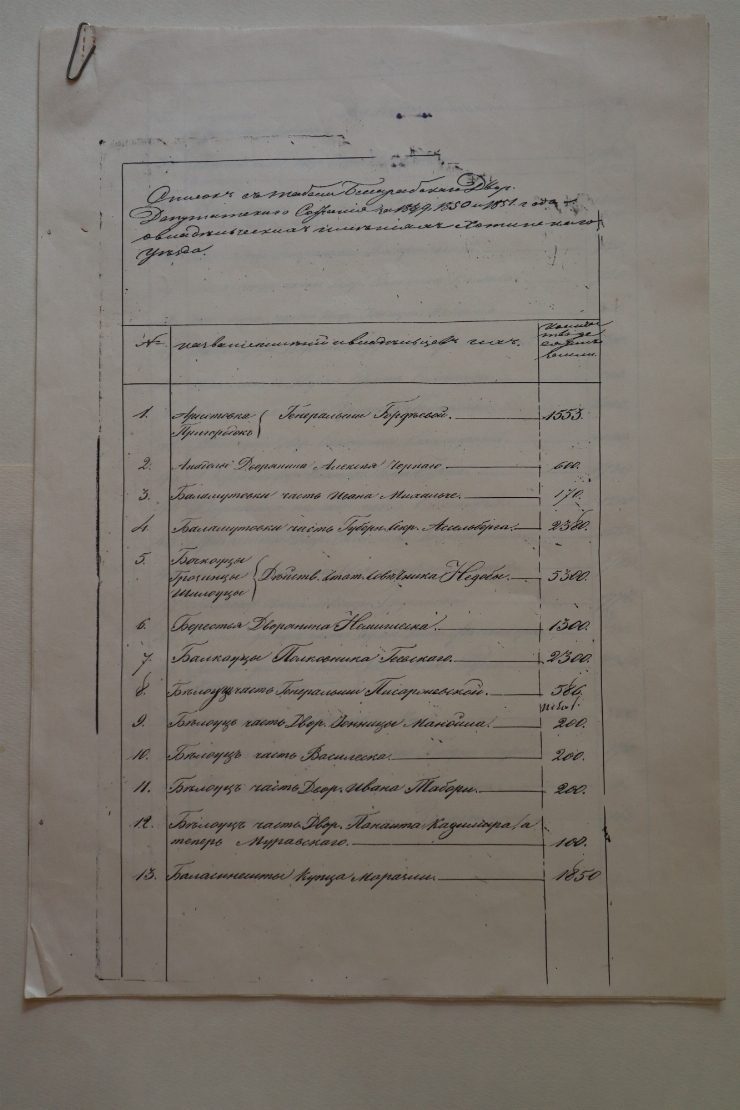 Списокъ съ табели Бессарабскаго Двор.
Депутатскаго Собранія за 1849, 1850 и 1851 года о
владѣльческихъ имѣніяхъ Хотинскаго
уѣзда.
№ названіе имѣній и владѣльцевъ ихъ. количе
ство де
сятинъ
земли.
1. Арестовка
Пригородокъ } Генеральши Гордѣевой. 1553.
2. Анадолы Дворянина Алексѣя Чернаго 600.
3. Баламутовки часть Ивана Михальче. 170.
4. Баламутовки часть Губерн. Секр. 2380.
5. Бочкоуцы
Грозинцы
Шилоуцы } Дѣйств. стат. совѣтника Недобы. 5300.
6. Берестья Дворянина 1300.
7. Балкауцы Полковника 2300.
8. Бѣлоуцъ часть Генеральши Писаржевской. 586
9. Бѣлоуцъ часть Двор. Манойла. 200.
10. Бѣлоуцъ часть Василеска. 200.
11. Бѣлоуцъ часть Двор. Ивана Таборы. 200.
12. Бѣлоуцъ часть Двор. Казимира, а
теперь Муравскаго. 100.
13. Баласинешты Купца Маразли. 1850